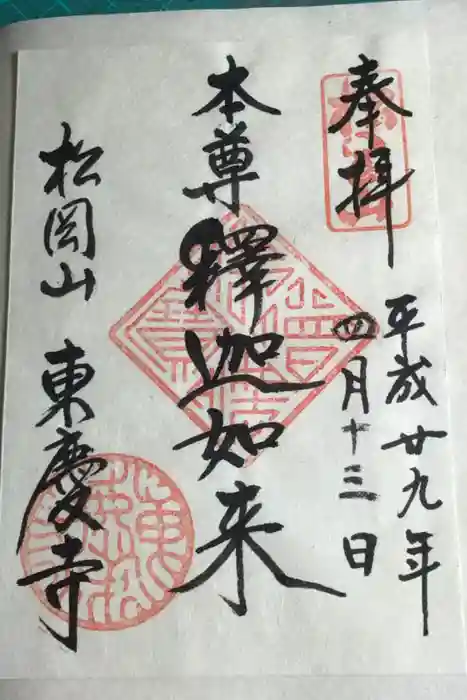 奉拝
平成廿九年
四月十三日
本尊釋迦如来
松岡山 東慶寺